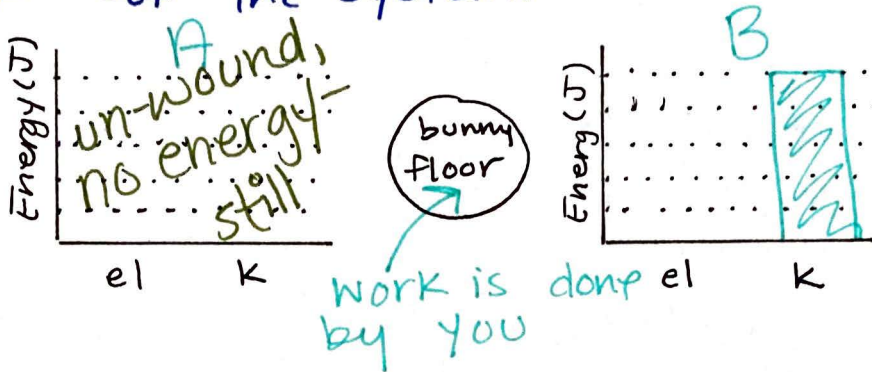 A
Energy (J)
un-wound,
no energy-
still
el K
bunny
floor
work is done
by you
B
Energ (J)
el K